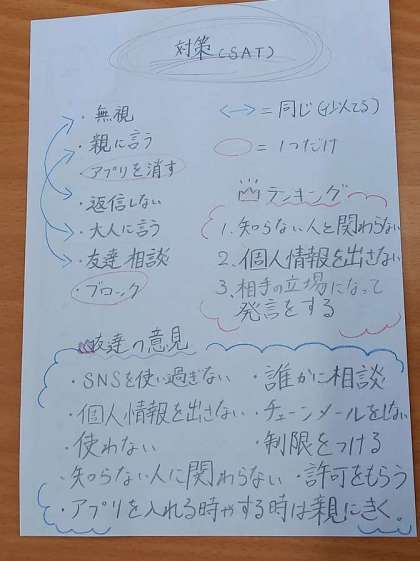 対策(SAT)
・無視
・親に言う
・アプリを消す
・返信しない
・大人に言う
・友達 相談
・ブロック
= 同じ(似てる)
= 1つだけ
ランキング
1. 知らない人と関わらない
2. 個人情報を出さない
3. 相手の立場になって
発言をする
友達の意見
・SNSを使い過ぎない
・誰かに相談
・個人情報を出さない
・チェーンメールをしない
・使わない
・制限をつける
・知らない人に関わらない
・許可をもらう
・アプリを入れる時やする時は親にきく。